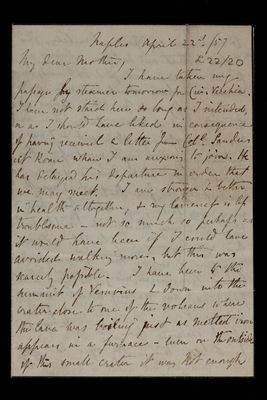 Naples April 22d /57
£22/20
My dear Mother,
I have taken my
passage by steamer tomorrow for Civ. Vecchia.
I have not staid here so long as I intended,
or as I should have liked in consequence
of having received a letter from Col. Sanders
at Rome whom I am anxious to join. He
has delayed his departure in order that
we may meet. I am stronger & better
in health altogether, & my lameness is less
troublesome - not so much so perhaps as
it would have been if I could have
avoided walking more, but this was
scarcely possible. I have been to the
summit of Vesuvius & down into the
crater close to one of the volcans where
the lava was boiling just as melted iron
appears in a furnace - even on the outside
of this small crater it was hot enough